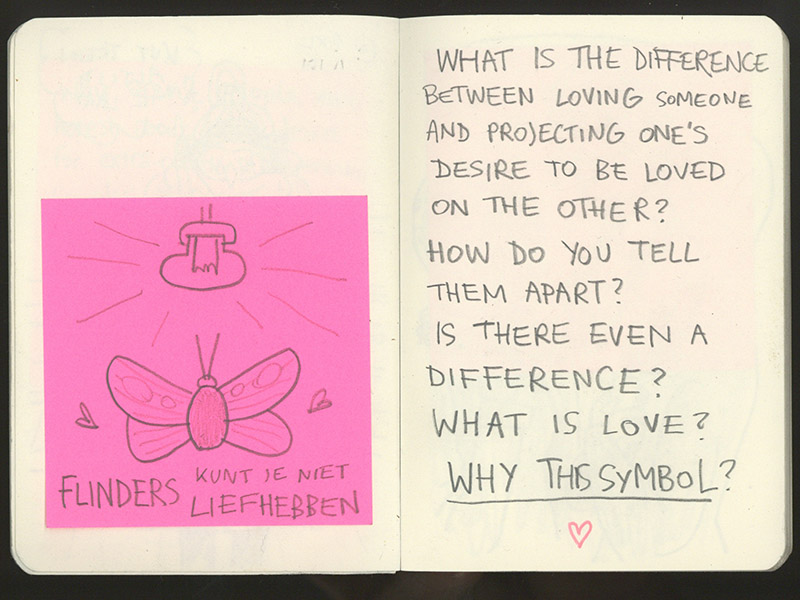 FLINDERS KUNT JE NIET
LIEFHEBBEN
WHAT IS THE DIFFERENCE
BETWEEN LOVING SOMEONE
AND PROJECTING ONE'S
DESIRE TO BE LOVED
ON THE OTHER?
HOW DO YOU TELL
THEM APART?
IS THERE EVEN A
DIFFERENCE?
WHAT IS LOVE?
WHY THIS SYMBOL?